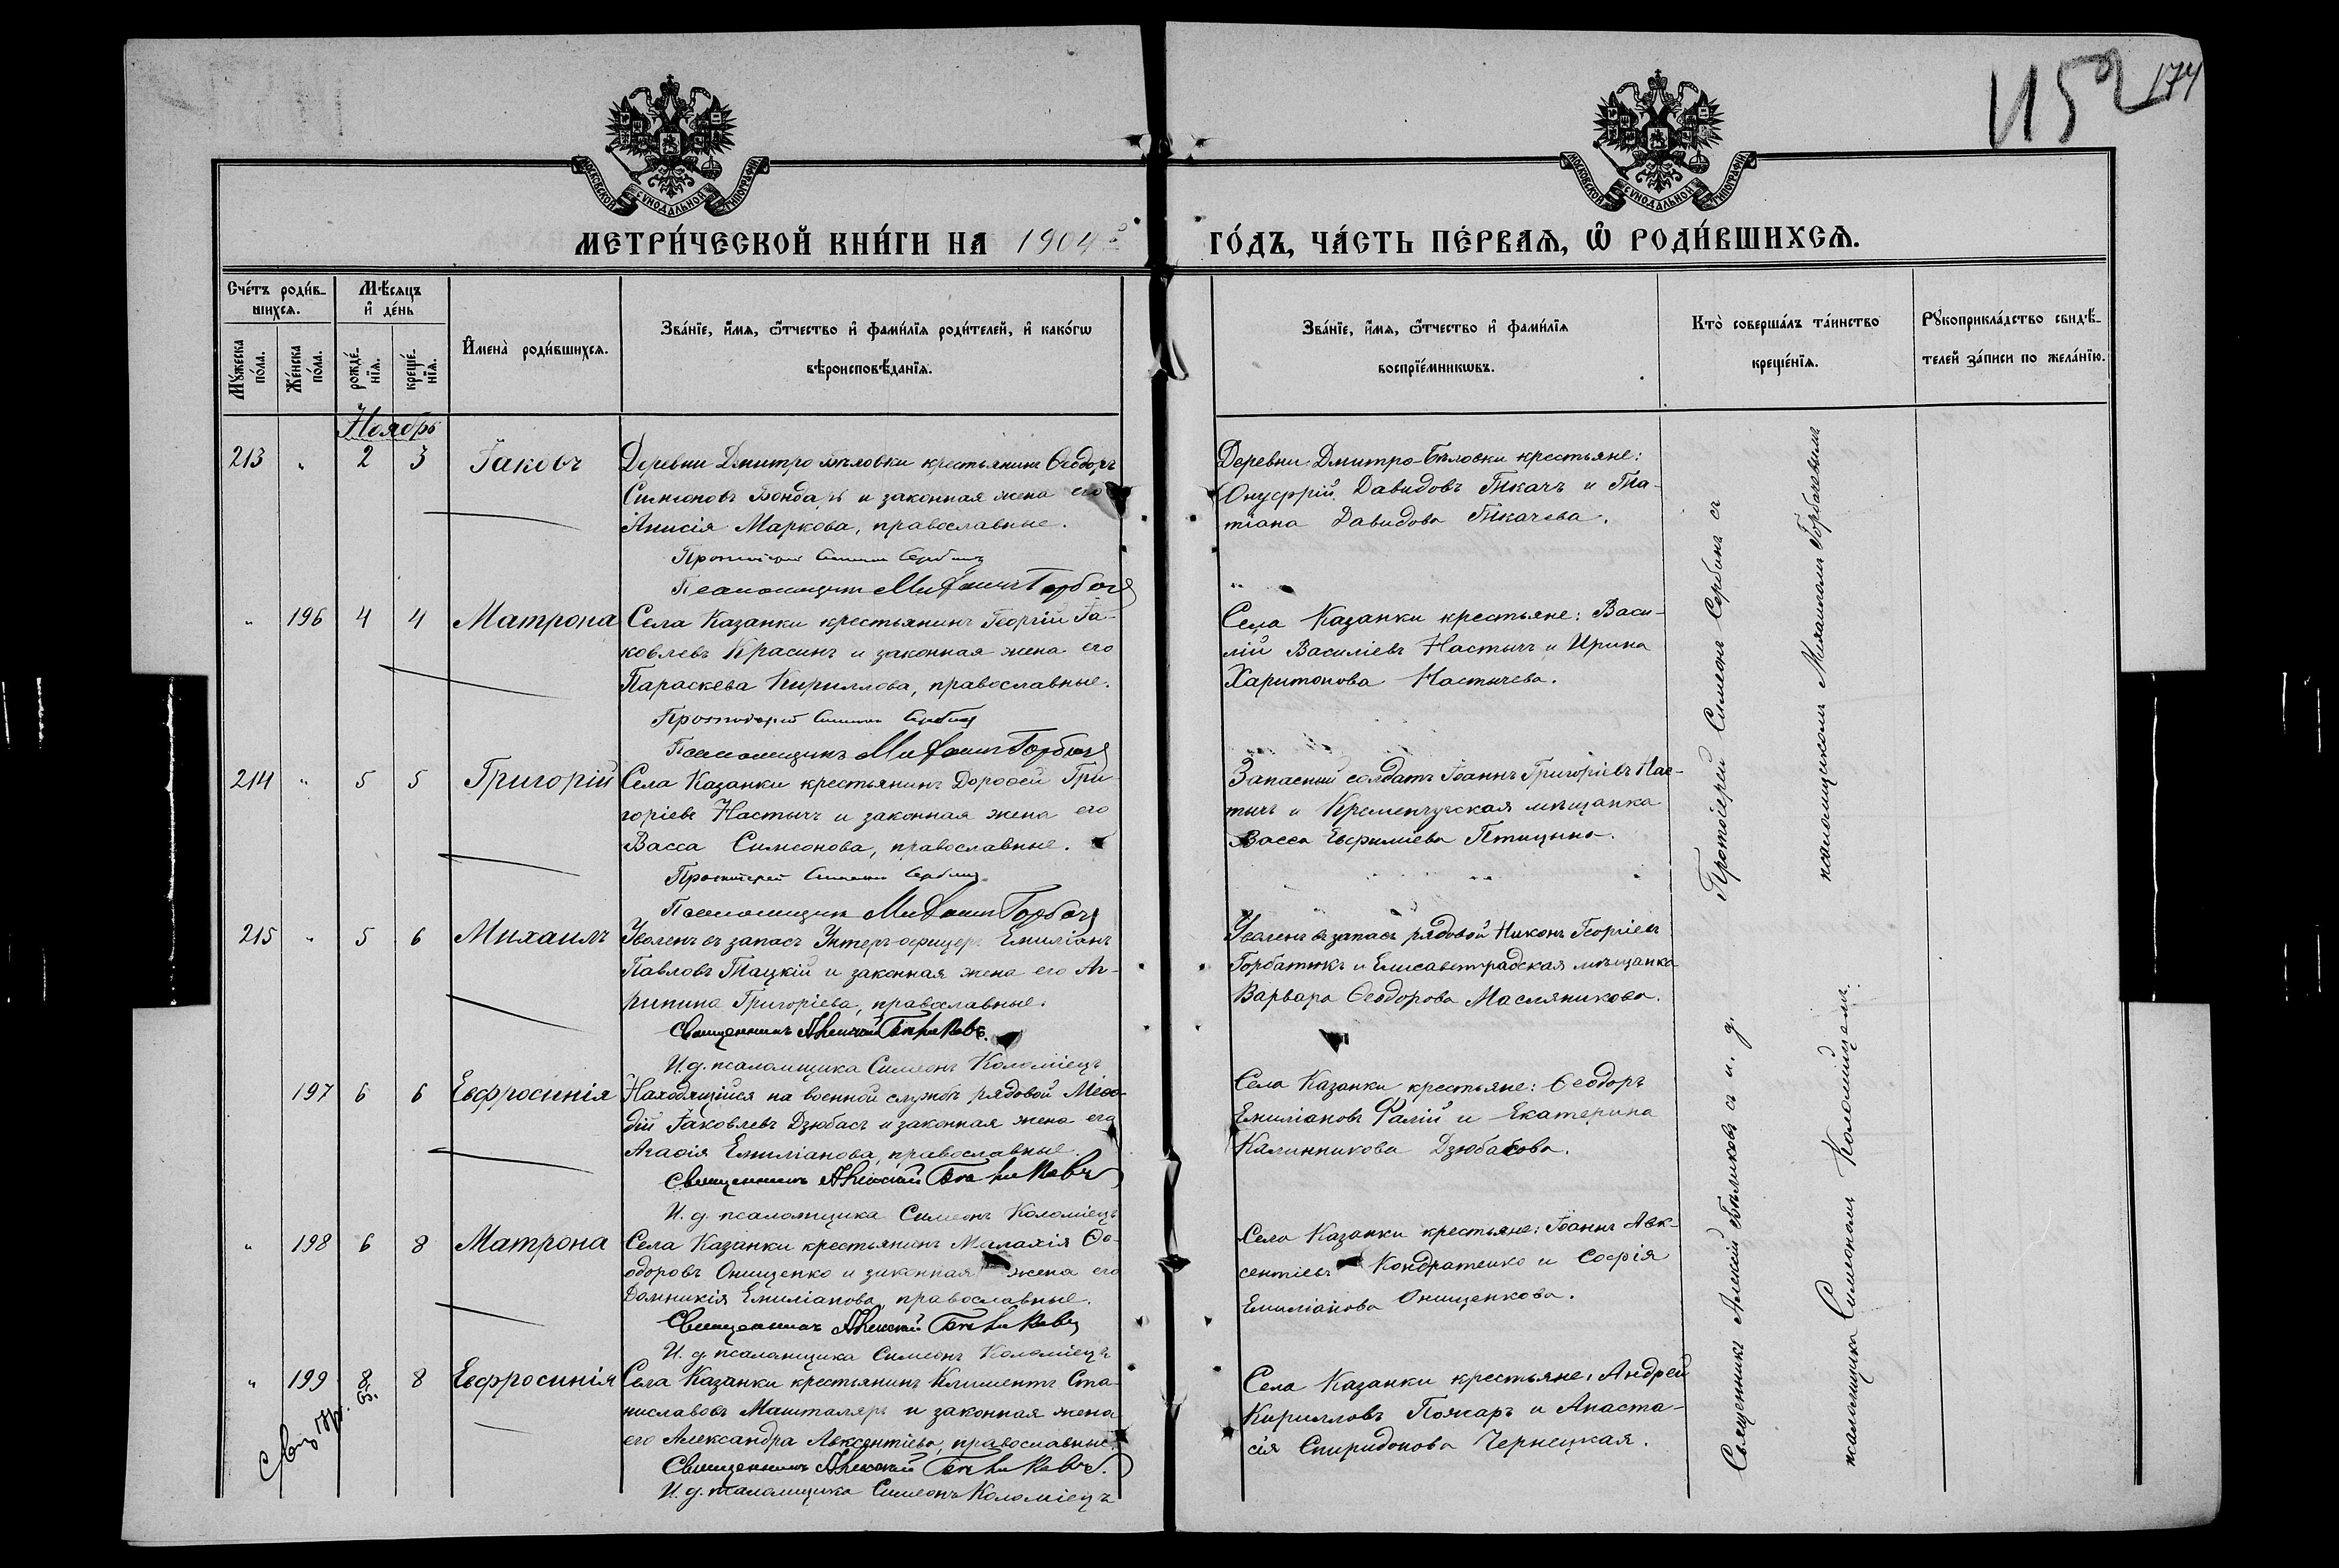 174
МОСКОВСКОЙ СУНОДАЛЬНОЙ ТИПОГРАФІИ
МОСКОВСКОЙ СУНОДАЛЬНОЙ ТИПОГРАФІИ
МЕТРИ́ЧЕСКОЙ КНИ́ГИ НА 1904 й ГО́ДЪ, ЧА́СТЬ ПЕ́РВАѦ, Ѽ РОДИ́ВШИХСѦ.
Сче́тъ роди́в-
шихсѧ.
Мꙋ́жеска по́ла.
Же́нска по́ла.
Мѣ́сѧцъ
и҆ де́нь
рожде́-нїѧ.
креще́-нїѧ.
И҆мена̀ роди́вшихсѧ.
Зва́нїе, и҆́мѧ, ѻ҆́тчество и҆ фами́лїѧ роди́телей, и҆ како́гѡ
вѣроисповѣ́данїѧ.
Зва́нїе, и҆́мѧ, ѻ҆́тчество и҆ фами́лїѧ
воспрїе́мникѡвъ.
Кто̀ соверша́лъ та́инство
креще́нїѧ.
Рꙋкоприкла́дство свидѣ́-
телей за́писи по жела́нїю.
Ноябрь
213 " 2 3 Іаковъ
Деревни Дмитро Бѣловки крестьянинъ Ѳеодоръ
Симеоновъ Бондарь и законная жена его
Анисія Маркова, православные.
Протоіерей Симеонъ Сербинъ
Псаломщикъ Михаилъ Горбач
Деревни Дмитро-Бѣловки крестьяне:
Онуфрій Давидовъ Ткачъ и Та-
тіана Давидова Ткачева.
" 196 4 4 Матрона
Села Казанки крестьянинъ Георгій Іа-
ковлевъ Красинъ и законная жена его
Параскева Кириллова, православные.
Протоіерей Симеонъ Сербинъ
Псаломщикъ Михаилъ Горбач
Села Казанки крестьяне: Васи-
лій Василіевъ Настычъ и Ирина
Харитонова Настычева.
214 " 5 5 Григорій
Села Казанки крестьянинъ Дороѳей Гри-
горіевъ Настычъ и законная жена его
Васса Симеонова, православные.
Протоіерей Симеонъ Сербинъ
Псаломщикъ Михаилъ Горбач
Запасный солдатъ Іоаннъ Григоріевъ Нас-
тычъ и Кременчугская мѣщанка
Васса Евфиміева Птицына.
215 " 5 6 Михаилъ
Уволенъ въ запасъ Унтеръ-офицеръ Емиліанъ
Павловъ Тацкій и законная жена его Аг-
рипина Григоріева, православные.
Священникъ Алексій Бѣликовъ.
И. д. псаломщика Симеонъ Коломіецъ
Уволенъ въ запасъ рядовой Никонъ Георгіевъ
Горбатюкъ и Елисаветградская мѣщанка
Варвара Ѳеодорова Масляникова.
197 6 6 Евфросинія
Находящійся на военной службѣ рядовой Меѳо-
дій Іаковлевъ Дзюбасъ и законная жена его
Агаѳія Емиліанова, православные.
Священникъ Алексій Бѣликовъ
И. д. псаломщика Симеонъ Коломіецъ
Села Казанки крестьяне: Ѳеодоръ
Емиліановъ Фалій и Екатерина
Калинникова Дзюбасова.
" 198 6 8 Матрона
Села Казанки крестьянинъ Малахія Ѳе-
одоровъ Онищенко и законная жена его
Домникія Емиліанова, православные.
Священникъ Алексій Бѣликовъ
И. д. псаломщика Симеонъ Коломіецъ
Села Казанки крестьяне: Іоаннъ Авк-
сентіевъ Кондратенко и Софія
Емиліанова Онищенкова.
" 199 8 8 Евфросинія
Села Казанки крестьянинъ Климентъ Ста-
ниславовъ Машталяръ и законная жена
его Александра Авксентіева, православные.
Священникъ Алексій Бѣликовъ.
И. д. псаломщика Симеонъ Коломіецъ
Села Казанки крестьяне: Андрей
Кирилловъ Пожаръ и Анаста-
сія Спиридонова Чернецкая.
Протоіерей Симеонъ Сербинъ съ
псаломщикомъ Михаиломъ Горбачевымъ
Священникъ Алексій Бѣликовъ съ и. д.
псаломщика Симеономъ Коломійцемъ.